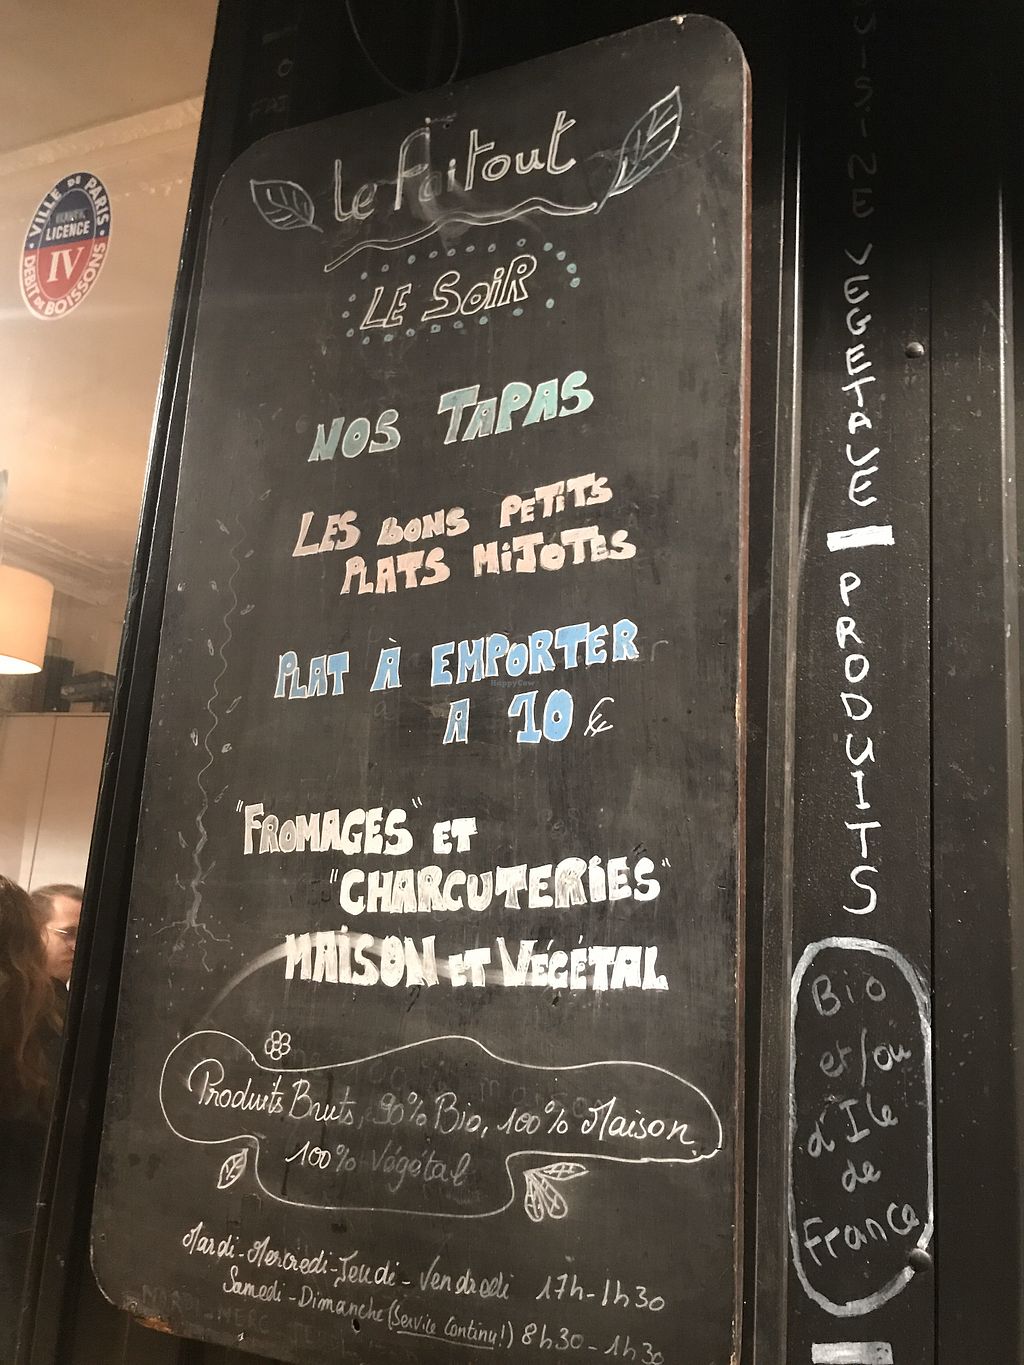 Le Faitout
LE SOIR
NOS TAPAS
LES BONS PETITS
PLATS MIJOTES
PLAT À EMPORTER
A 10 €
"FROMAGES" ET
"CHARCUTERIES"
MAISON ET VÉGÉTAL
Produits Bruts, 90% Bio, 100% Maison
100% Végétal
Mardi-Mercredi-Jeudi-Vendredi 17h-1h30
Samedi-Dimanche (Service Continu!) 8h30-1h30
VILLE DE PARIS
LICENCE
IV
DEBIT DE BOISSONS
CUISINE VEGETALE
PRODUITS
Bio
et/ou
d'Ile
de
France
HappyCow